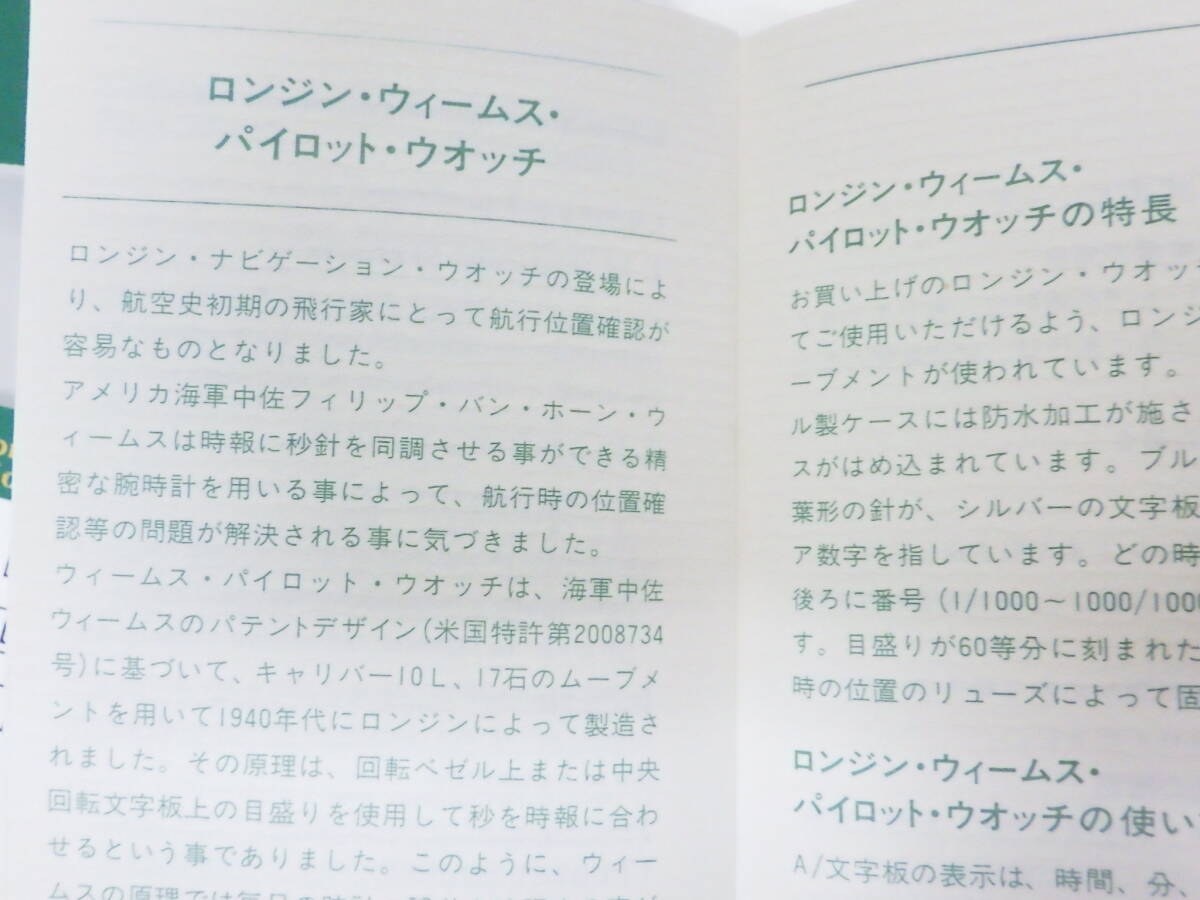 ロンジン・ウィームス・
パイロット・ウオッチ
ロンジン・ナビゲーション・ウオッチの登場によ
り、航空史初期の飛行家にとって航行位置確認が
容易なものとなりました。
アメリカ海軍中佐フィリップ・バン・ホーン・ウ
ィームスは時報に秒針を同調させる事ができる精
密な腕時計を用いる事によって、航行時の位置確
認等の問題が解決される事に気づきました。
ウィームス・パイロット・ウオッチは、海軍中佐
ウィームスのパテントデザイン(米国特許第2008734
号)に基づいて、キャリバー10L、17石のムーブメ
ントを用いて1940年代にロンジンによって製造さ
れました。その原理は、回転ベゼル上または中央
回転文字板上の目盛りを使用して秒を時報に合わ
せるという事でありました。このように、ウィー
ムスの原理では毎日の時計
ロンジン・ウィームス・
パイロット・ウオッチの特長
お買い上げのロンジン・ウオッ
てご使用いただけるよう、ロンジ
ーブメントが使われています。
ル製ケースには防水加工が施さ
スがはめ込まれています。ブル
葉形の針が、シルバーの文字板
ア数字を指しています。どの時
後ろに番号(1/1000～1000/1000
す。目盛りが60等分に刻まれた
時の位置のリューズによって固
ロンジン・ウィームス・
パイロット・ウオッチの使い
A/文字板の表示は、時間、分、